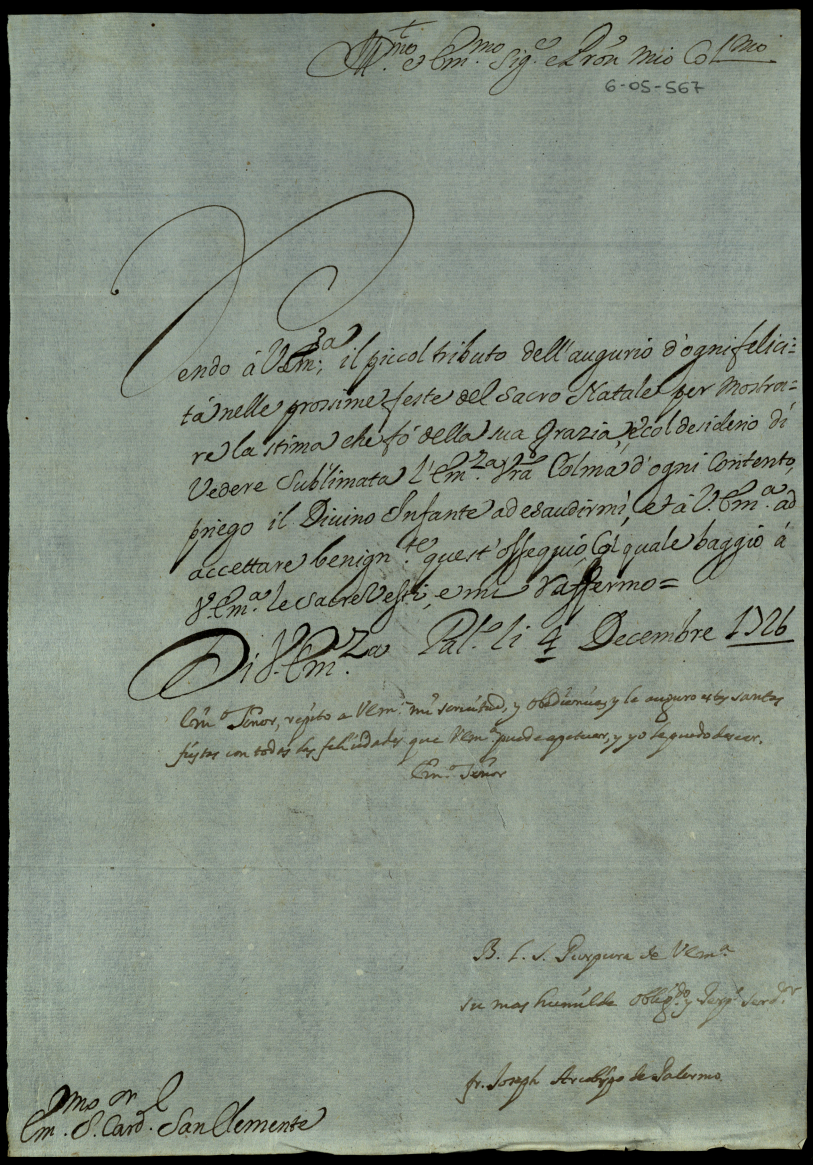 Em.mo Sig.e e Pron mio Col.mo
6-05-567
Rendo á V.Em.za, il piccol tributo dell'augurio d'ogni felici=
tá nelle prossime feste del Sacro Natale per mostra=
re la stima che fó della sua Grazia, e col desiderio di
Vedere Sublimata l'Em.za Vra Colma d'ogni Contento,
priego il Divino Infante ad esaudirmi, et á V.Em.a ad
accettare benign.te quest'ossequio, Col quale baggio á
V.Em.a le Sacre Vesti, e mi raffermo=
Di V.Em.za Pal.o li 4 Decembre 1726
Em.o Señor, repito a VEm.a mi servitud, y obediencia, y le auguro estas santas
fiestas con todas las felicidades que VEm.a puede apetecer, y yo le puedo desear.
Em.o Señor
B. L. S. Purpura de VEm.a
su mas humilde oblig.do y Serv.dor
fr. Joseph Arcobpo de Palermo
Em.mo S. Card. San Clemente